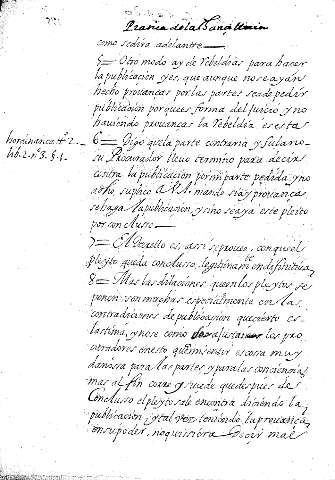 Pratica de la
como se dira adelante
5 = Otro modo ay de Rebeldias para hacer
la publicaçion yes, que aunque nose ayan
hecho provanças por las partes se ade pedir
publicaçion porque es forma del Juicio, y no
haviendo provanças la Rebeldia es esta
hordinança
lib. 2. nº 3. § 1.
6 = Digo que la parte contraria y Su
su Procurador llevo termino para deçir
contra la publicaçion por mi parte pedida y no
a dho, suplico A V. A. mande si ay provança
se haga la publicaçion, y si no se aya este pleito
por concluso
7 = El Decreto es, assi se provee, con que el
pleyto queda concluso, legitimamte en definitiva
8 = Mas las dilaçiones que en los pleytos se
ponen son muchas especialmente en las
contradiciones de publicaçion que çierto es
lastima, y no se como los pro
curadores en esto que es cosa muy
dañosa para las partes y para las conciencias
mas al fin corre y suçede que despues de
Concluso el pleyto sale en contra diciendo la
publicaçion y tal vez teniendo la provança
en su poder, no quisiera decir mal